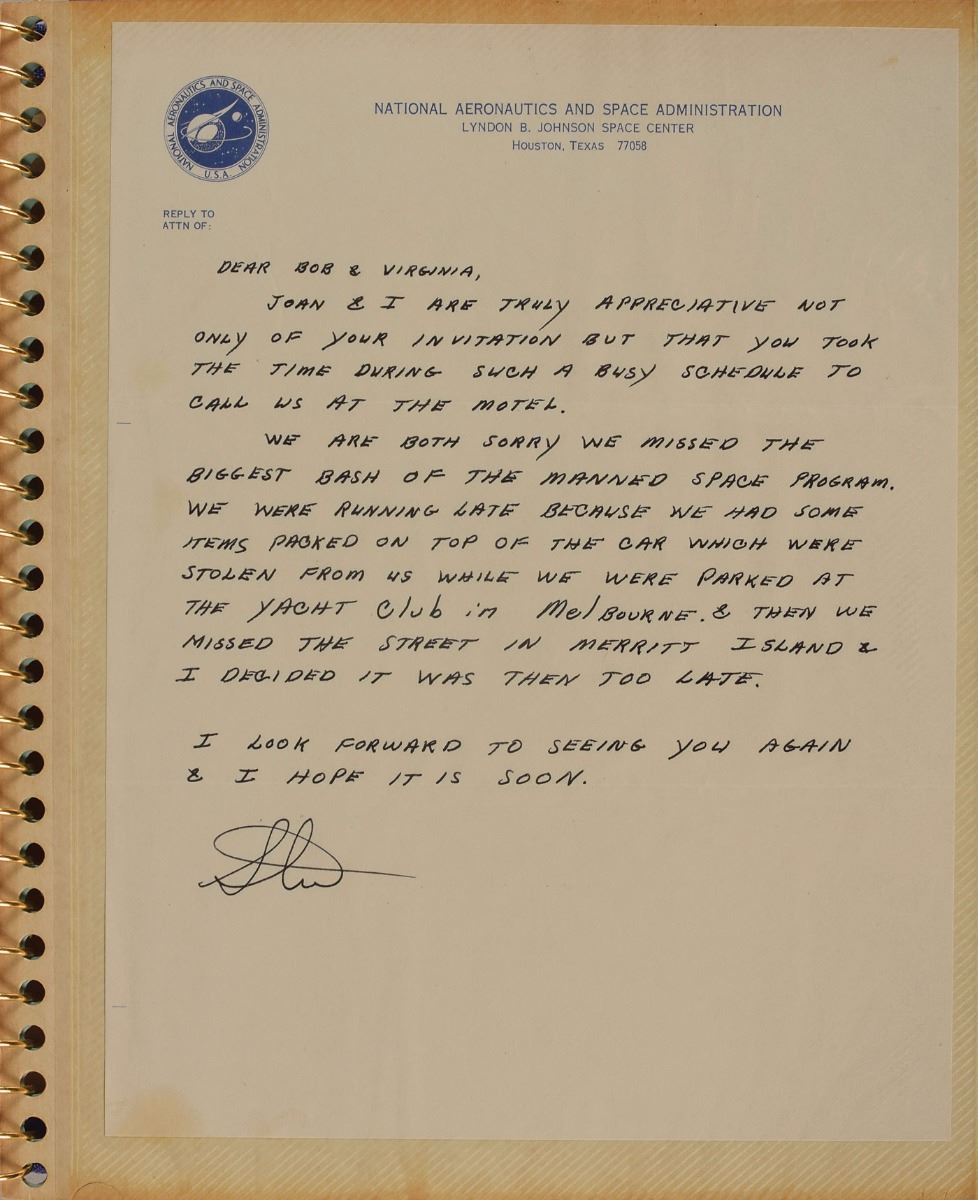 NATIONAL AERONAUTICS AND SPACE ADMINISTRATION
U.S.A.
NATIONAL AERONAUTICS AND SPACE ADMINISTRATION
LYNDON B. JOHNSON SPACE CENTER
HOUSTON, TEXAS 77058
REPLY TO
ATTN OF:
DEAR BOB & VIRGINIA,
JOAN & I ARE TRULY APPRECIATIVE NOT
ONLY OF YOUR INVITATION BUT THAT YOU TOOK
THE TIME DURING SUCH A BUSY SCHEDULE TO
CALL US AT THE MOTEL.
WE ARE BOTH SORRY WE MISSED THE
BIGGEST BASH OF THE MANNED SPACE PROGRAM.
WE WERE RUNNING LATE BECAUSE WE HAD SOME
ITEMS PACKED ON TOP OF THE CAR WHICH WERE
STOLEN FROM US WHILE WE WERE PARKED AT
THE YACHT Club in MelBOURNE. & THEN WE
MISSED THE STREET IN MERRITT ISLAND &
I DECIDED IT WAS THEN TOO LATE.
I LOOK FORWARD TO SEEING YOU AGAIN
& I HOPE IT IS SOON.